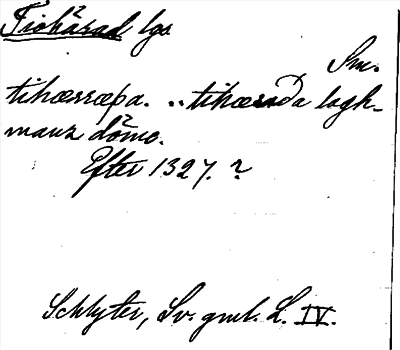 Tiohärad lgs
Sm.
tihæræþa. .. tihæraða lagh-
manz döme.
Efter 1327. ?
Schlyter, Sv. gml. L. IV.